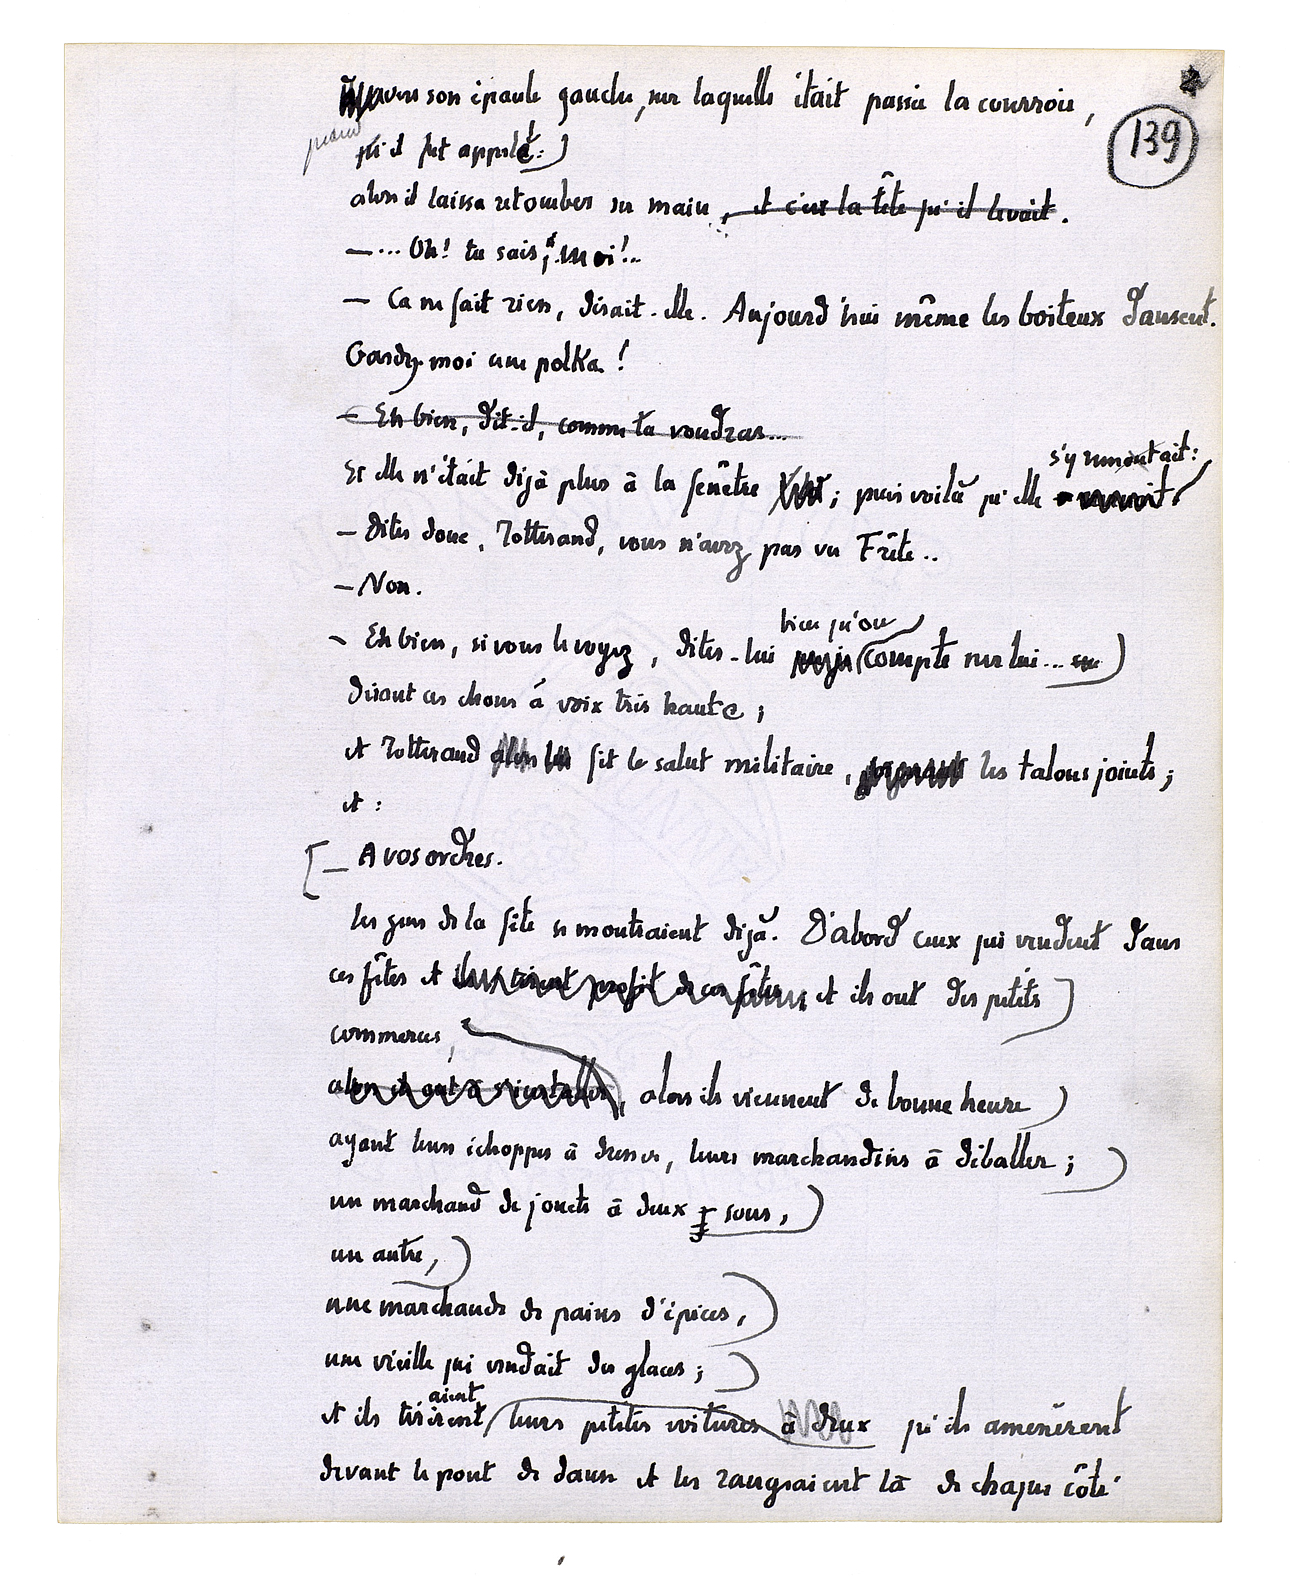 vers son épaule gauche, sur laquelle était passée la courroie,
139
quand
qu'il fut appelé:)
alors il laissa retomber sa main, et c'est la tête qu'il levait.
— ... Oh! tu sais, moi!..
— Ca ne fait rien, disait-elle. Aujourd'hui même les boiteux dansent.
Gardez-moi une polka!
— Eh bien, dit-il, comme tu voudras...
s'y remontrait:
Et elle n'était déjà plus à la fenêtre ; puis voilà qu'elle
— Dites donc, Rotterand, vous n'avez pas vu Frète..
— Non.
bien qu'on
— Eh bien, si vous le voyez, dites-lui compte sur lui...)
disant ces choses à voix très haute;
et Rotterand alors fit le salut militaire, les talons joints;
et:
[— A vos ordres.
Les gens de la fête se montraient déjà. D'abord ceux qui vendent dans
ces fêtes et tirent profit de ces fêtes, et ils ont des petits)
commerces,
alors ils ont à s'installer, alors ils viennent de bonne heure)
ayant leurs échoppes à dresser, leurs marchandises à déballer;)
un marchand de jouets à deux sous,)
un autre,)
une marchande de pains d'épices,)
une vieille qui vendait des glaces;)
aient
et ils tirèrent leurs petites voitures à deux qu'ils amenèrent
devant le pont de danse et les rangeaient là de chaque côté